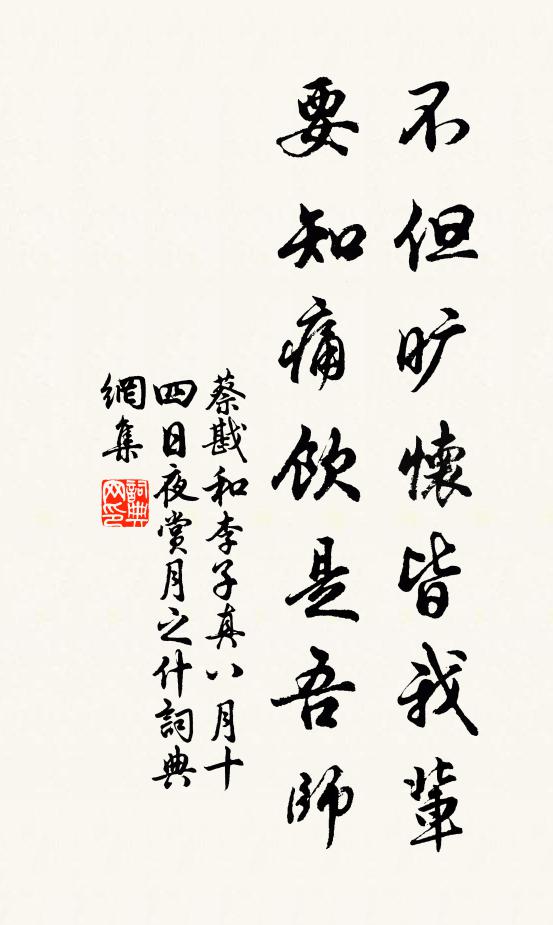 不但旷懷皆我輩
要知痛飲是吾師
蔡戡和李子真八月十
四日夜賞月之什詞典
網集
詞典
网印